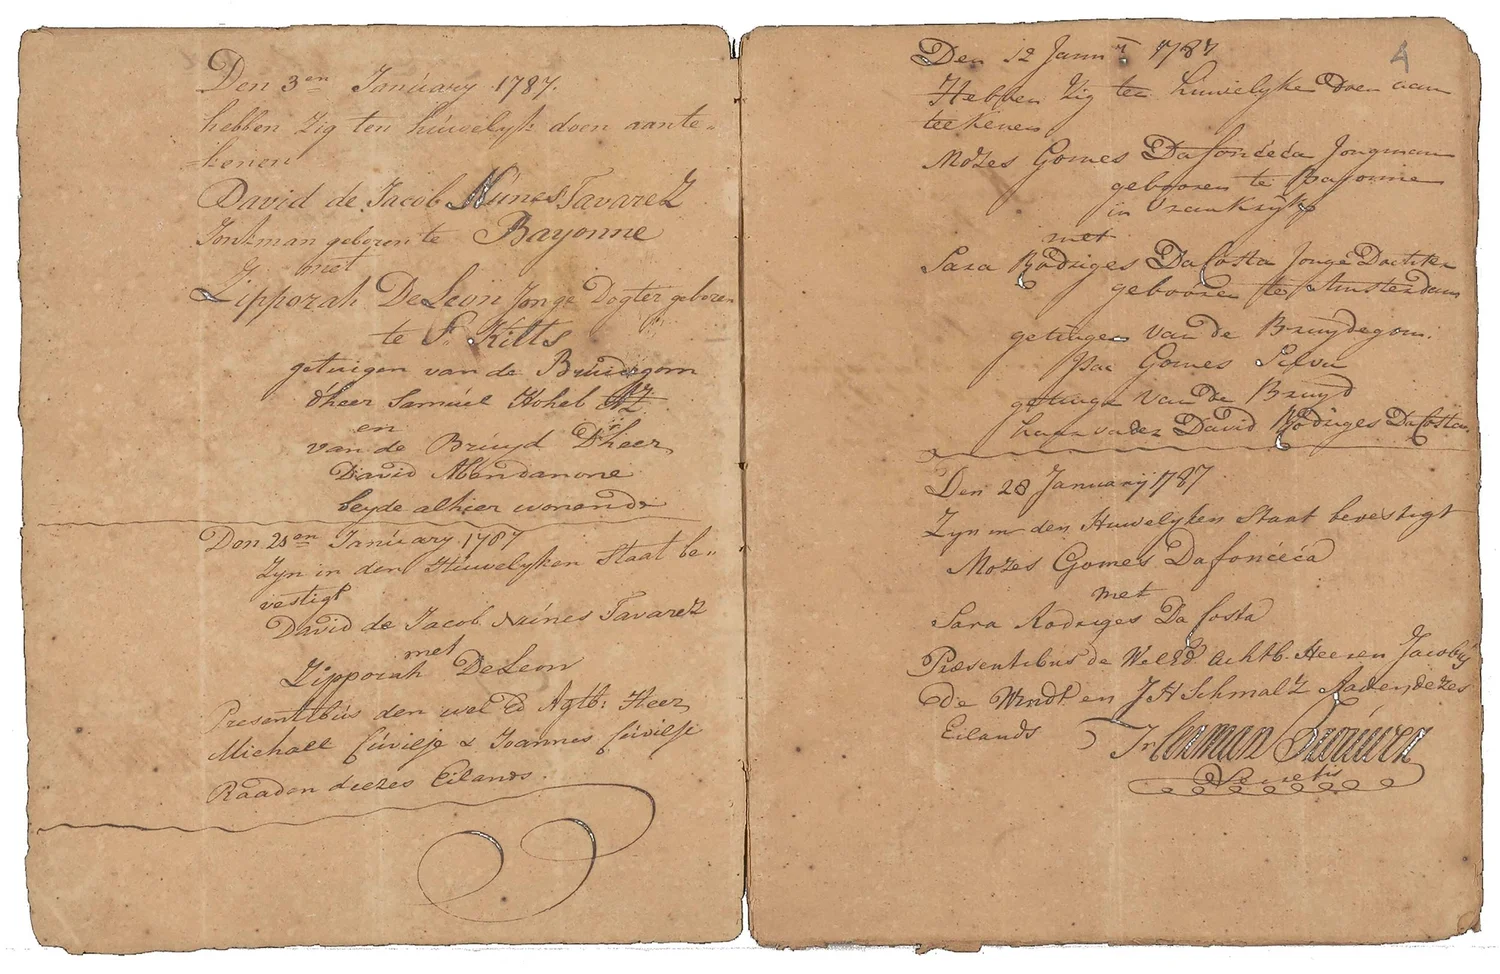 Den 3en January 1787.
hebben Zig ten húwelyk doen aante„
=kenen
David de Jacob Núnes TavareZ
Jonkman geboren te Bayonne
met
Zipporah DeLeon Jonge Dogter geboren
te St. Kitts
getuigen van de Bruidegom
d'heer Samúel Hoheb
en
van de Brúyd D'heer
David Abendanone
beyde alhier wonende
Den 20en Janúary 1787
Zyn in den Húwelyken Staat be„
vestigt
David de Jacob Núnes TavareZ
met
Zipporah DeLeon
Presentibús den wel Ed Agtb: Heer
Michall Cúvilje & Joannes Cúvilje
Raaden deezes Eilands.
4
Den 12 Januy 1787
Hebben Zig tee huwelyke Doen aan
teekenen
Mozes Gomes Dafonceca Jongman
gebooren te Bajonne
in Vrankryk
met
Sara Rodriges DaCosta Jonge Dochter
gebooren te Amsterdam
getuigen van de Bruydegom.
Isac Gomes Silva
getuige van de Bruyd
haar vader David Rodriges DaCosta.
Den 28 January 1787
Zyn in den Huwelyken Staat bevestigt
Mozes Gomes Dafonceca
met
Sara Rodriges Da Costa
Præsentibus de WelEd Achtb. Heeren Jacobus
de Windt en J H SchmalZ Raden dezes
Eilands
Secretis